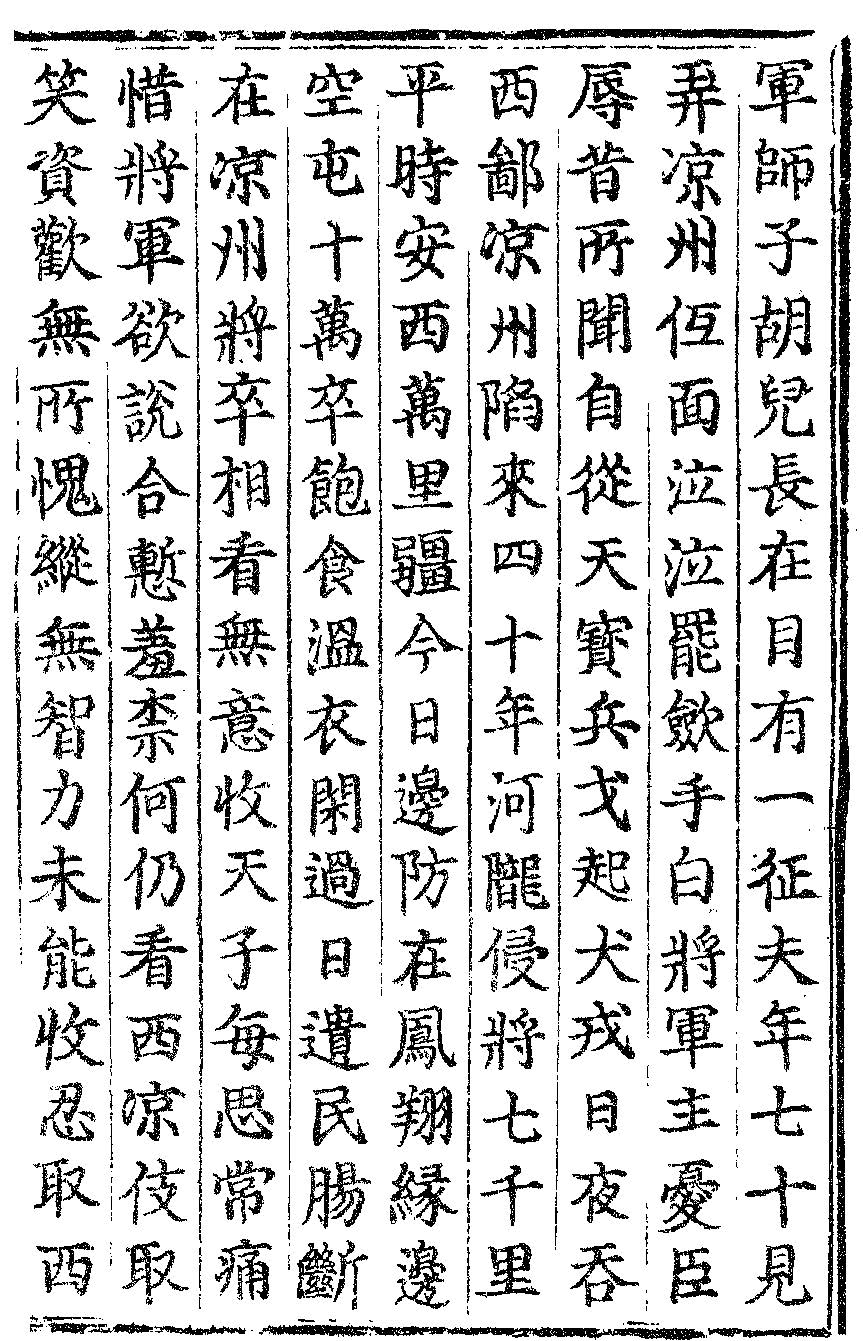 軍師子胡兒長在目有一征夫年七十見
弄涼州低面泣泣罷斂手白將軍主憂臣
辱昔所聞自從天寶兵戈起犬戎日夜吞
西鄙涼州陷來四十年河隴侵將七千里
平時安西萬里疆今日邊防在鳳翔緣邊
空屯十萬卒飽食溫衣閑過日遺民腸斷
在涼州將卒相看無意收天子每思常痛
惜將軍欲說合慙羞柰何仍看西涼伎取
笑資歡無所愧縱無智力未能收忍取西